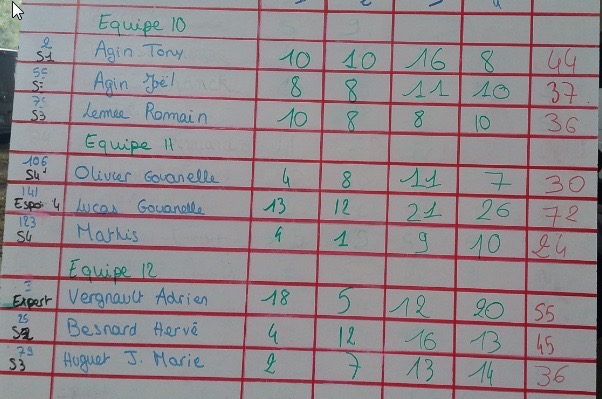 Equipe 10
2
S1 Agin Tony 10 10 16 8 44
S Agin Joël 8 8 11 10 37
S3 Lemee Romain 10 8 8 10 36
Equipe 11
106
S4 Olivier Gouanelle 4 8 11 7 30
141
Espoi 4 Lucas Gouanelle 13 12 21 26 72
123
S4 Mathis 4 1 9 10 24
Equipe 12
Expert Vergnault Adrien 18 5 12 20 55
25
S2 Besnard Hervé 4 12 16 13 45
79
S3 Huguet J. Marie 2 7 13 14 36